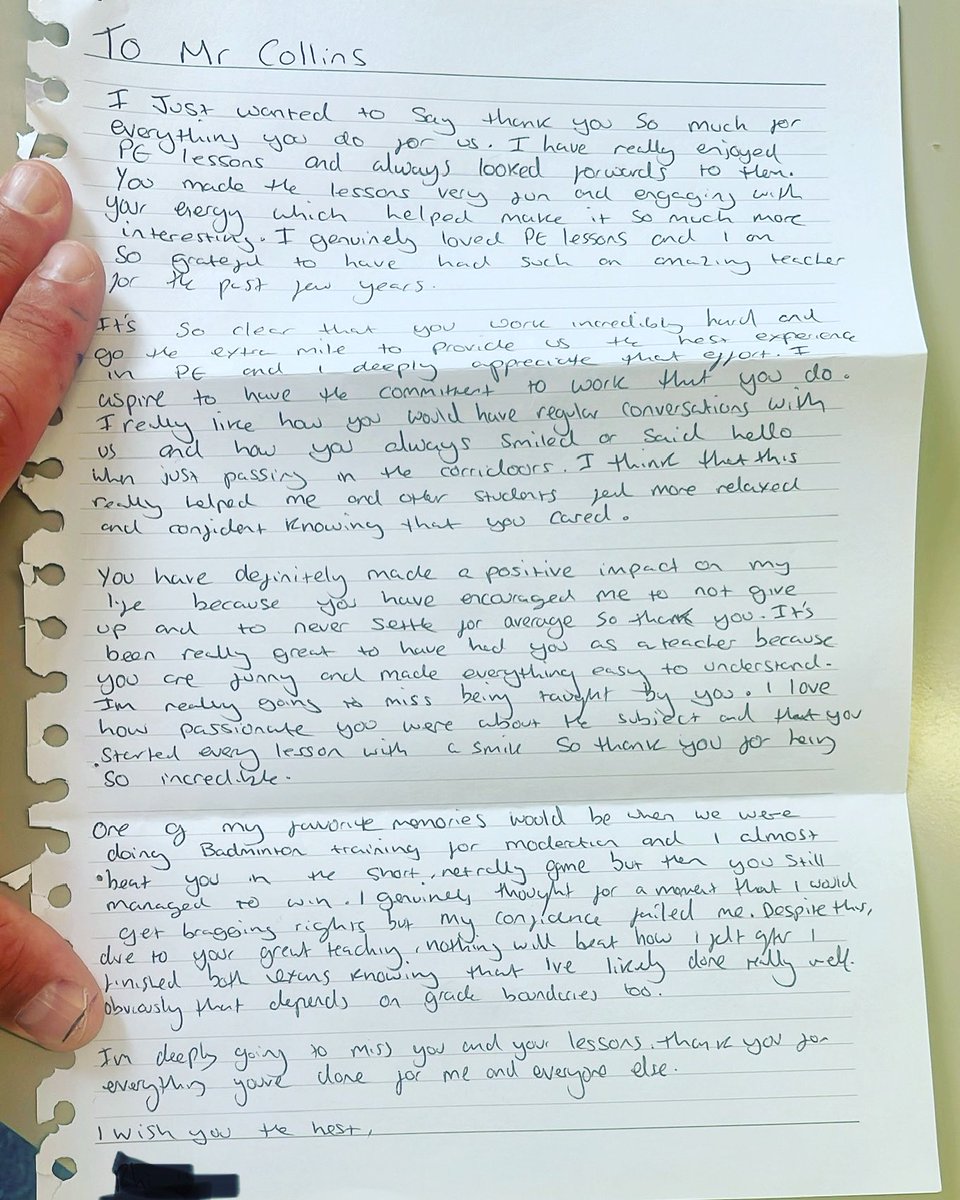 To Mr Collins
I Just wanted to say thank you so much for
everything you do for us. I have really enjoyed
PE lessons and always looked forwards to them.
You made the lessons very fun and engaging with
your energy which helped make it so much more
interesting. I genuinely loved PE lessons and I am
so grateful to have had such an amazing teacher
for the past few years.
It's so clear that you work incredibly hard and
go the extra mile to provide us the best experience
in PE and I deeply appreciate that effort. I
aspire to have the commitment to work that you do.
I really like how you would have regular conversations with
us and how you always smiled or said hello
when just passing in the corridoors. I think that this
really helped me and other students feel more relaxed
and confident knowing that you cared.
You have definitely made a positive impact on my
life because you have encouraged me to not give
up and to never settle for average so thank you. It's
been really great to have had you as a teacher because
you are funny and made everything easy to understand.
Im really going to miss being taught by you. I love
how passionate you were about the subject and that you
started every lesson with a smile so thank you for being
so incredible.
One of my favorite memories would be when we were
doing Badminton training for moderation and I almost
beat you in the short, net rally game but then you still
managed to win. I genuinely thought for a moment that I would
get bragging rights but my confidence failed me. Despite this,
due to your great teaching, nothing will beat how I felt after I
finished both exams knowing that I've likely done really well.
obviously that depends on grade boundaries too.
Im deeply going to miss you and your lessons. thank you for
everything you've done for me and everyone else.
I wish you the best,